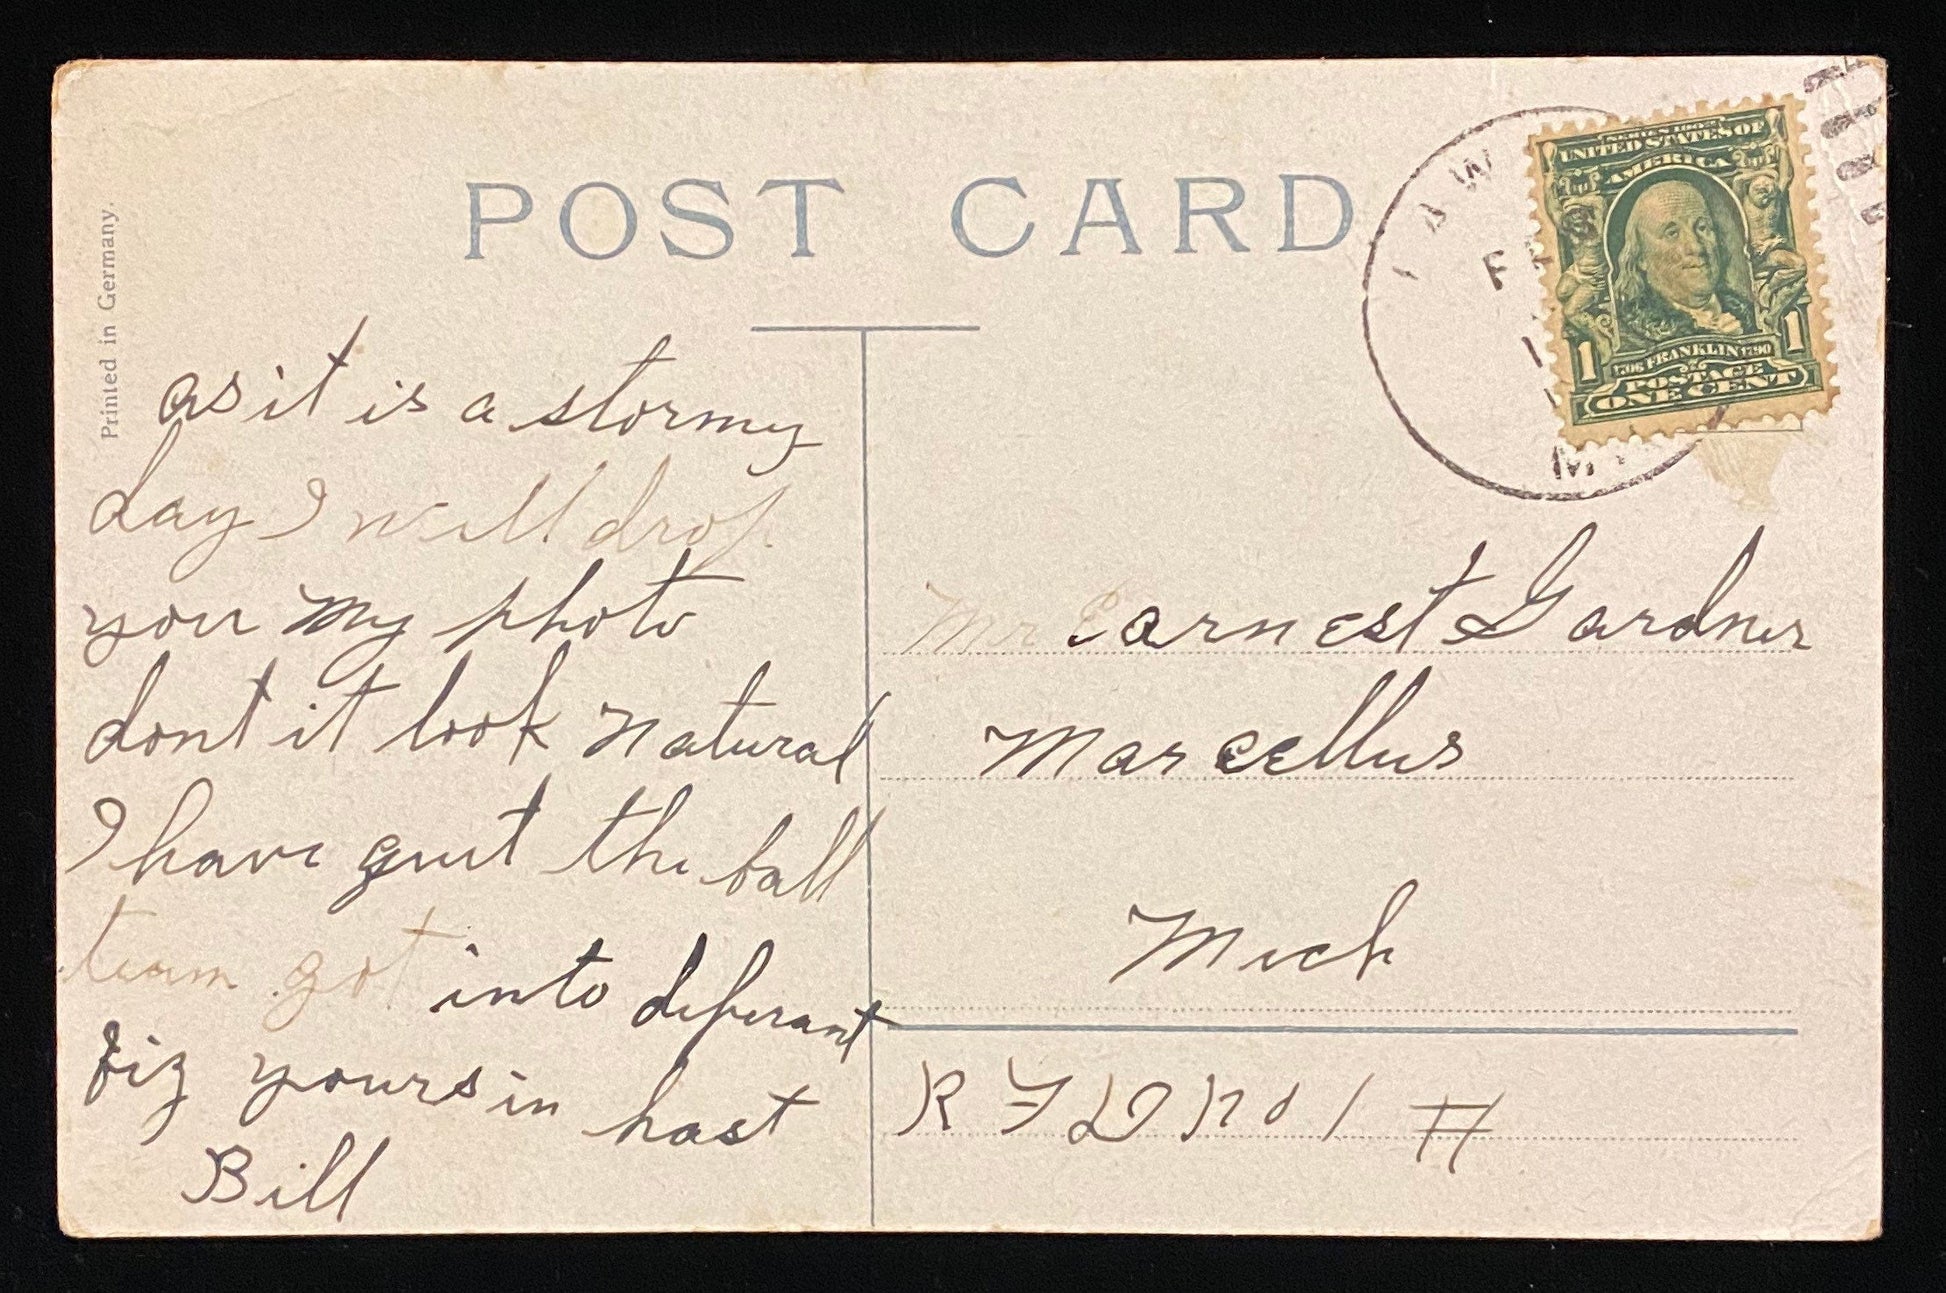 POST CARD
Printed in Germany.
as it is a stormy
day I will drop
you my photo
dont it look natural
I have quit the ball
team got into diferant
fiz yours in hast
Bill
LAW
MI
SERIES 1902
UNITED STATES OF
AMERICA
1706 FRANKLIN 1790
1 1
POSTAGE
ONE CENT
Mr Earnest Gardner
Marcellus
Mich
R F D No 1 #